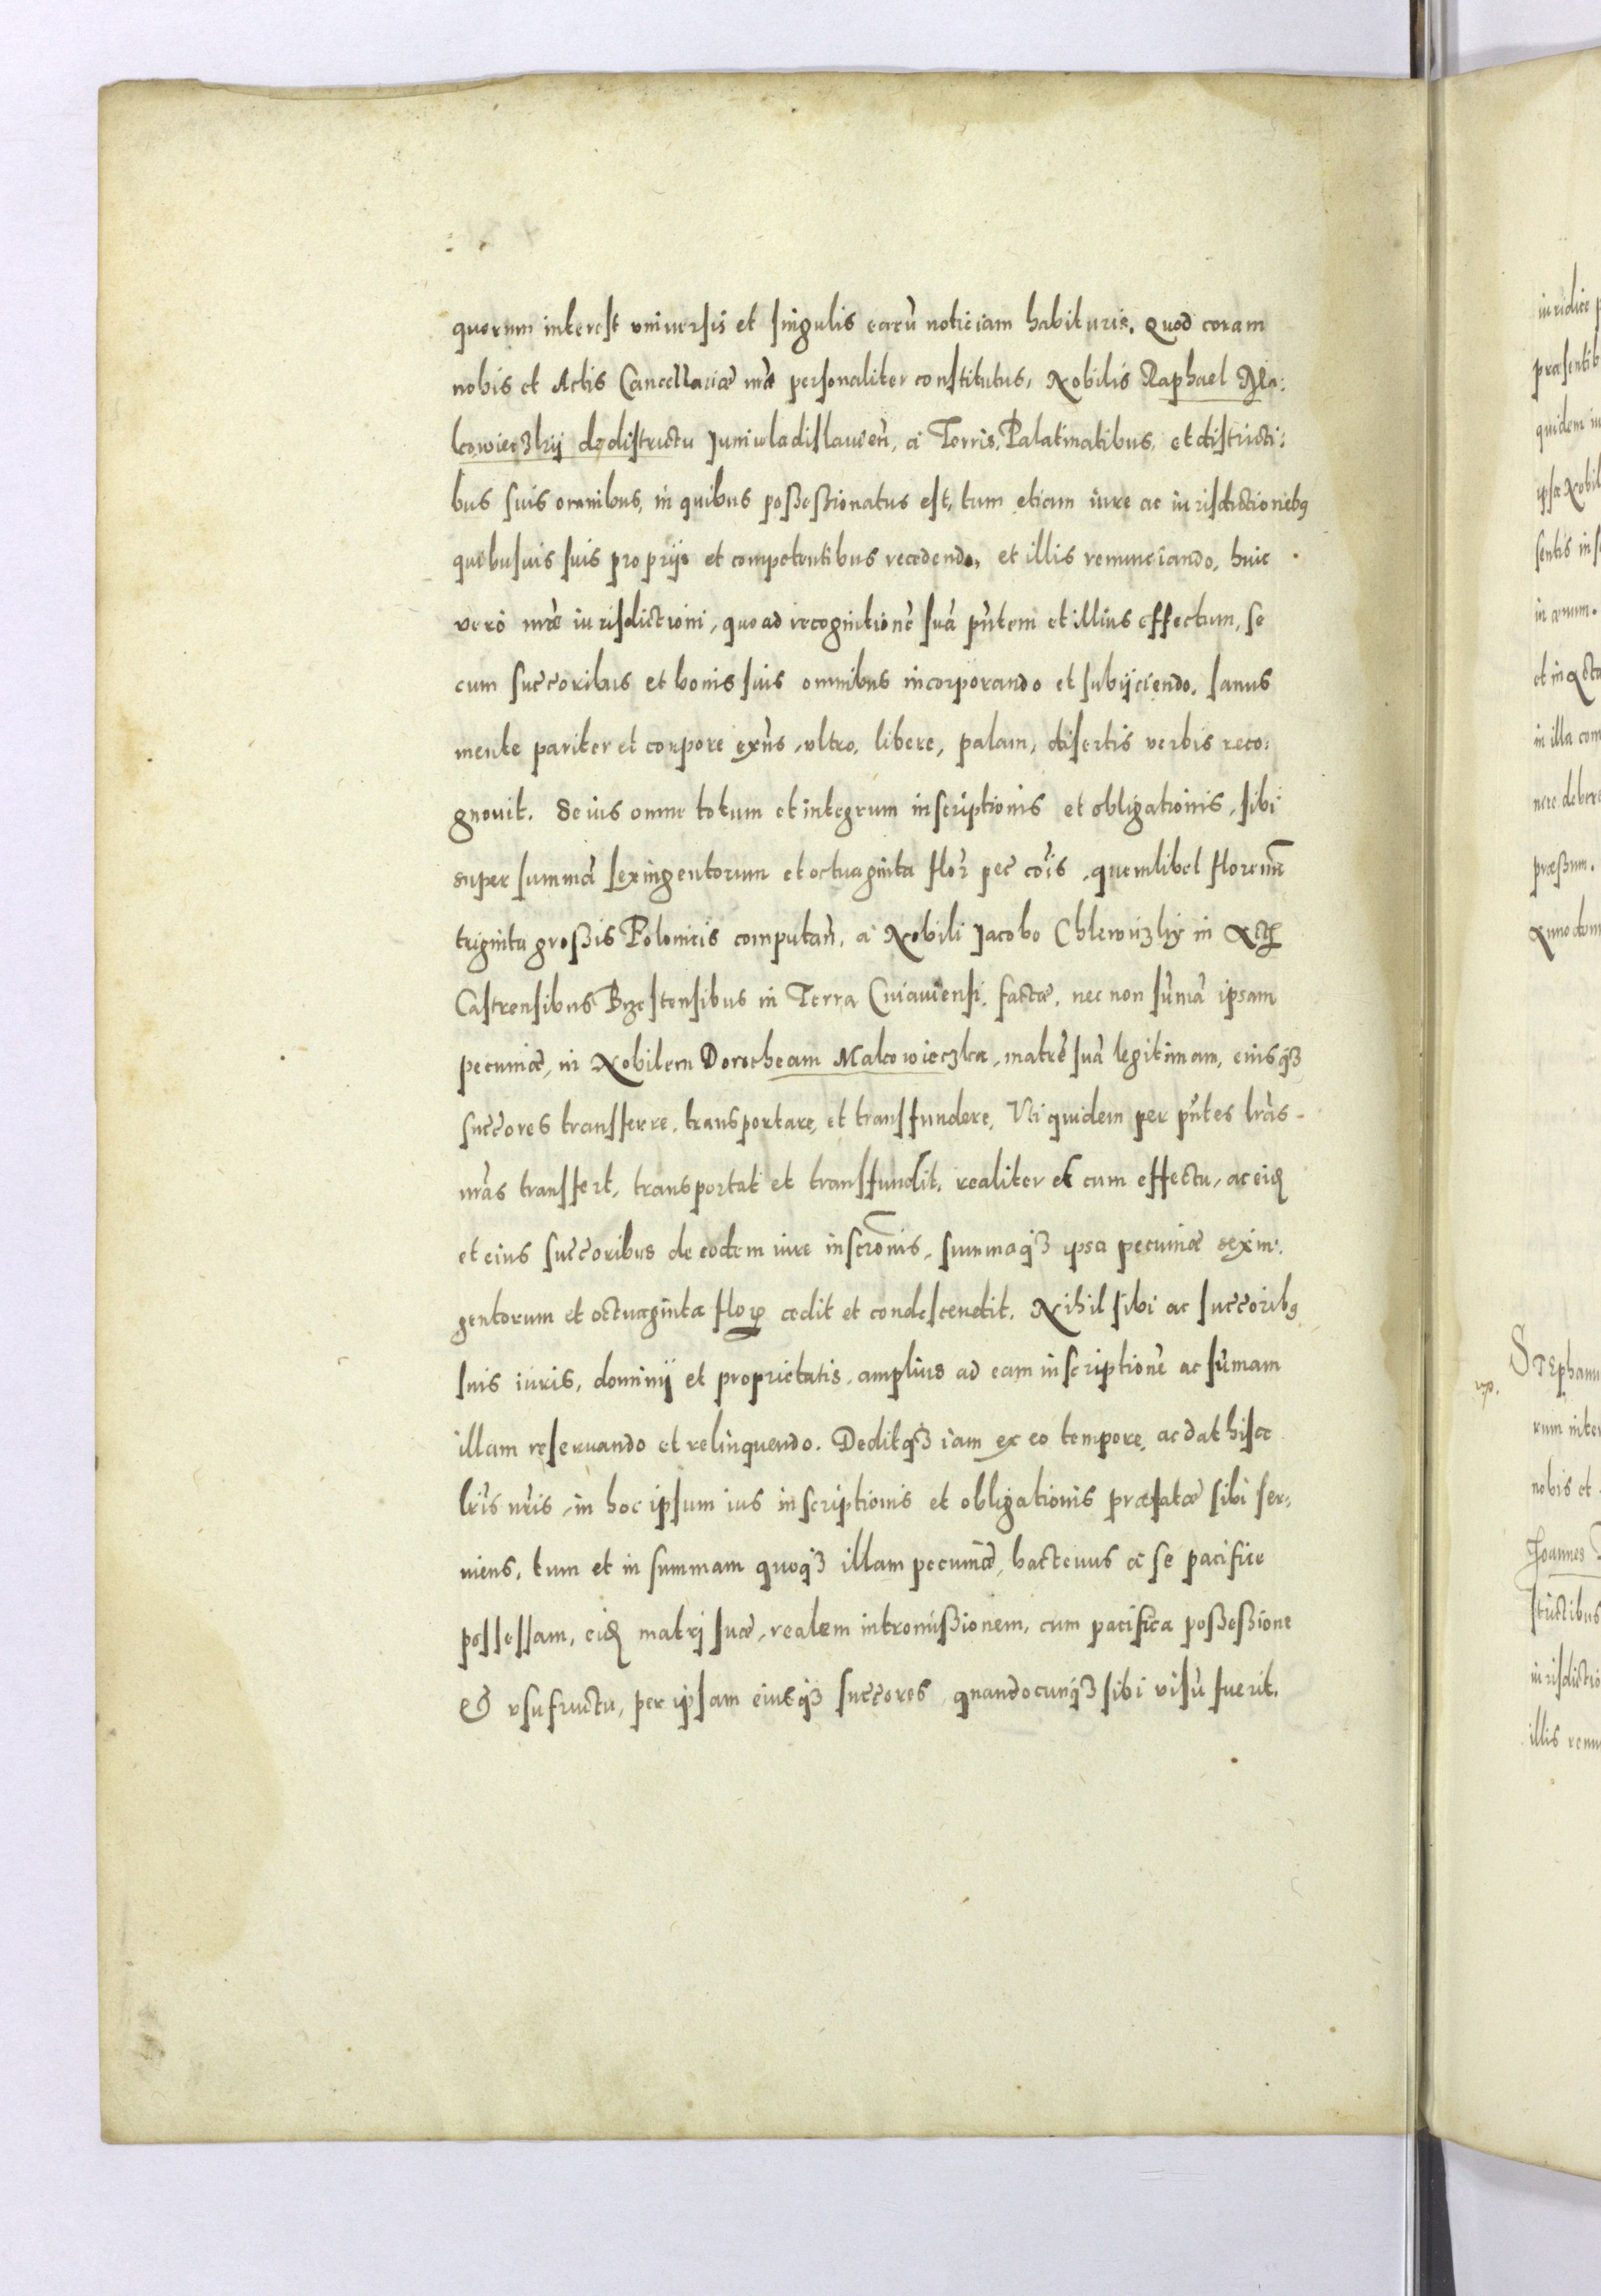 quorum interest vniuersis et singulis earū noticiam habituris. Quod coram
nobis et Actis Cancellariæ nr̃æ personaliter constitutus, Nobilis Raphael Ma:
kowieczkij de districtu Juniuladislauień, à Terris, Palatinatibus, et districti:
bus suis omnibus, in quibus possessionatus est, tum etiam iure ac iurisdictionibꝰ
quibusuis suis proprijs et competentibus recedendo, et illis renunciando, huic
verò nr̃æ iurisdictioni, quoad recognitionē suā pñtem et illius effectum, se
cum succ̃oribus et bonis suis omnibus incorporando et subijciendo. Sanus
mente pariter et corpore exñs, vltro, libere, palam, disertis verbis reco:
gnouit. Se ius omne totum et integrum inscriptionis et obligationis, sibi
super summā sexingentorum et octuaginta flor̃ pec̃ cõis, quemlibet florenū
triginta grossis Polonicis computań, à Nobili Jacobo Chlewiczkij in Actꝭ
Castrensibus Brzestensibus in Terra Cuiauiensi, factæ, nec non sūmā ipsam
pecuniæ, in Nobilem Dorotheam Makowieczka, matrē suā legitimam, eiusqꝫ
succ̃ores transferre, transportare, et transfundere, Vti quidem per pñtes lr̃as
nr̃as transfert, transportat et transfundit, realiter et cum effectu, ac eidꝫ
et eius succ̃oribus de eodem iure inscr̃onis, summaqꝫ ipsa pecuniæ sexin:
gentorum et octuaginta florꝭ cedit et condescendit. Nihil sibi ac succ̃oribꝰ
suis iuris, dominij et proprietatis, amplius ad eam inscriptionē ac sūmam
illam reseruando et relinquendo. Deditqꝫ iam ex eo tempore, ac dat hisce
lr̃is nr̃is, in hoc ipsum ius inscriptionis et obligationis præfatæ sibi ser:
uiens, tum et in summam quoqꝫ illam pecuniæ, hactenus à se pacifice
possessam, eidꝫ matrj suæ, realem intromissionem, cum pacifica possessione
et vsufructu, per ipsam eiusqꝫ succ̃ores quandocunqꝫ sibi visū fuerit.
iuridice
quidem
sentis
in ænum.
et in
in illa
Stephanu
nobis et
Joannes
illis renu